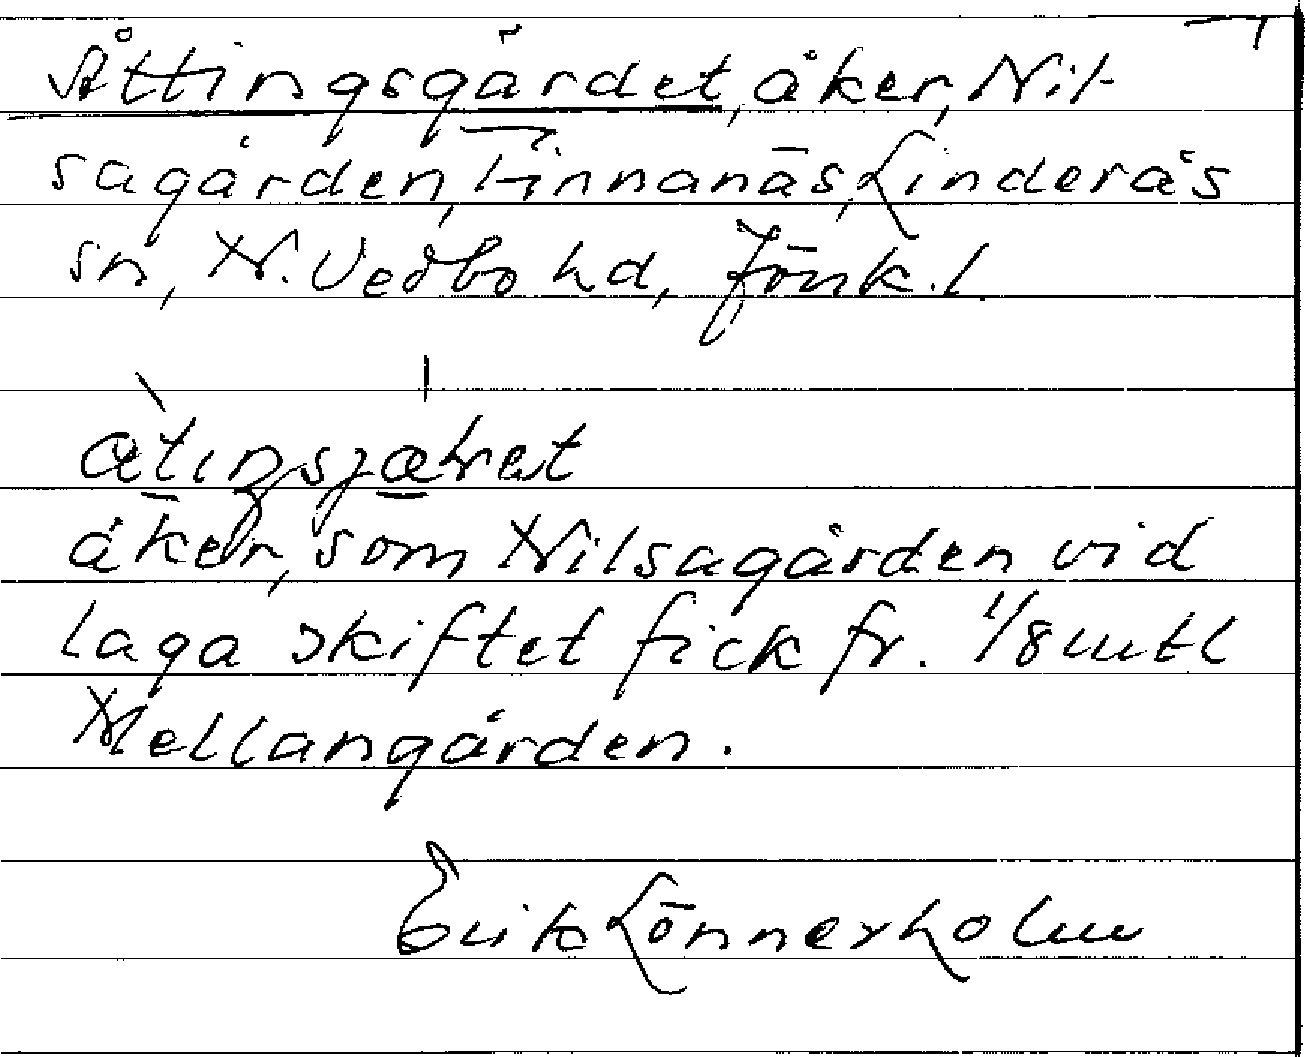 Åttingsgärdet, åker, Nil-
sagården, Finnanäs, Linderås
sn, N. Vedbo hd, Jönk. l.
åker, som Nilsagården vid
laga skiftet fick fr. 1/8 mtl
Mellangården.
Erik Lönnerholm